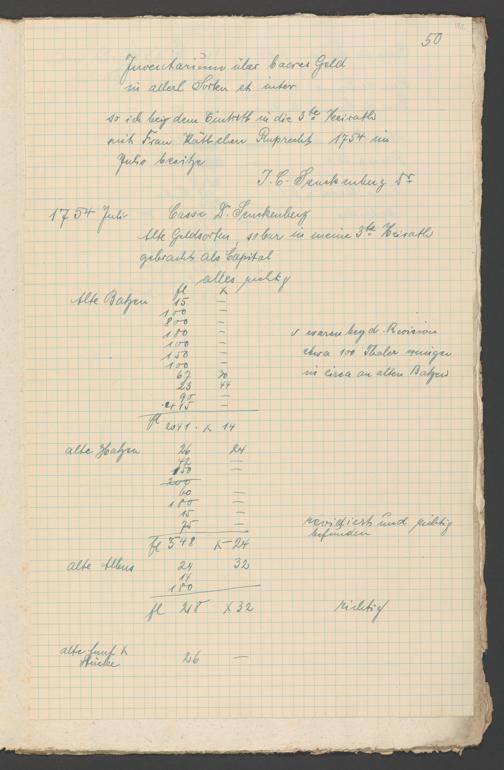 50
Inventarium über baares Geld
in allerl Sorten et inter
so ich beÿ dem Eintritt in die 3te Heirath
mit Frau Kättchen Ruprecht 1754 im
Julio besitze
J. C. Senckenberg Dr
1754 Juli Cassa D. Senckenberg
Alte Geldsorten, so bar in meine 3te Heirath
gebracht als Capital
alles richtig
fl x
Alte Batzen 15 —
100 —
800 —
180 —
100 —
150 —
100 —
67 30
23 44
90 —
415 —
fl 2041 · x 14
s waren beÿ d. Revision
etwa 100 Thaler weniger
in circa an alten Batzen
alte Batzen 26 24
—
150 —
200
60 —
180 —
15 —
75 —
fl 548 x — 24
revidiert und richtig
befunden
alte Albus 24 32
14
180
fl 218 x 32
richtig
alte fünf x
Stücke 26 —